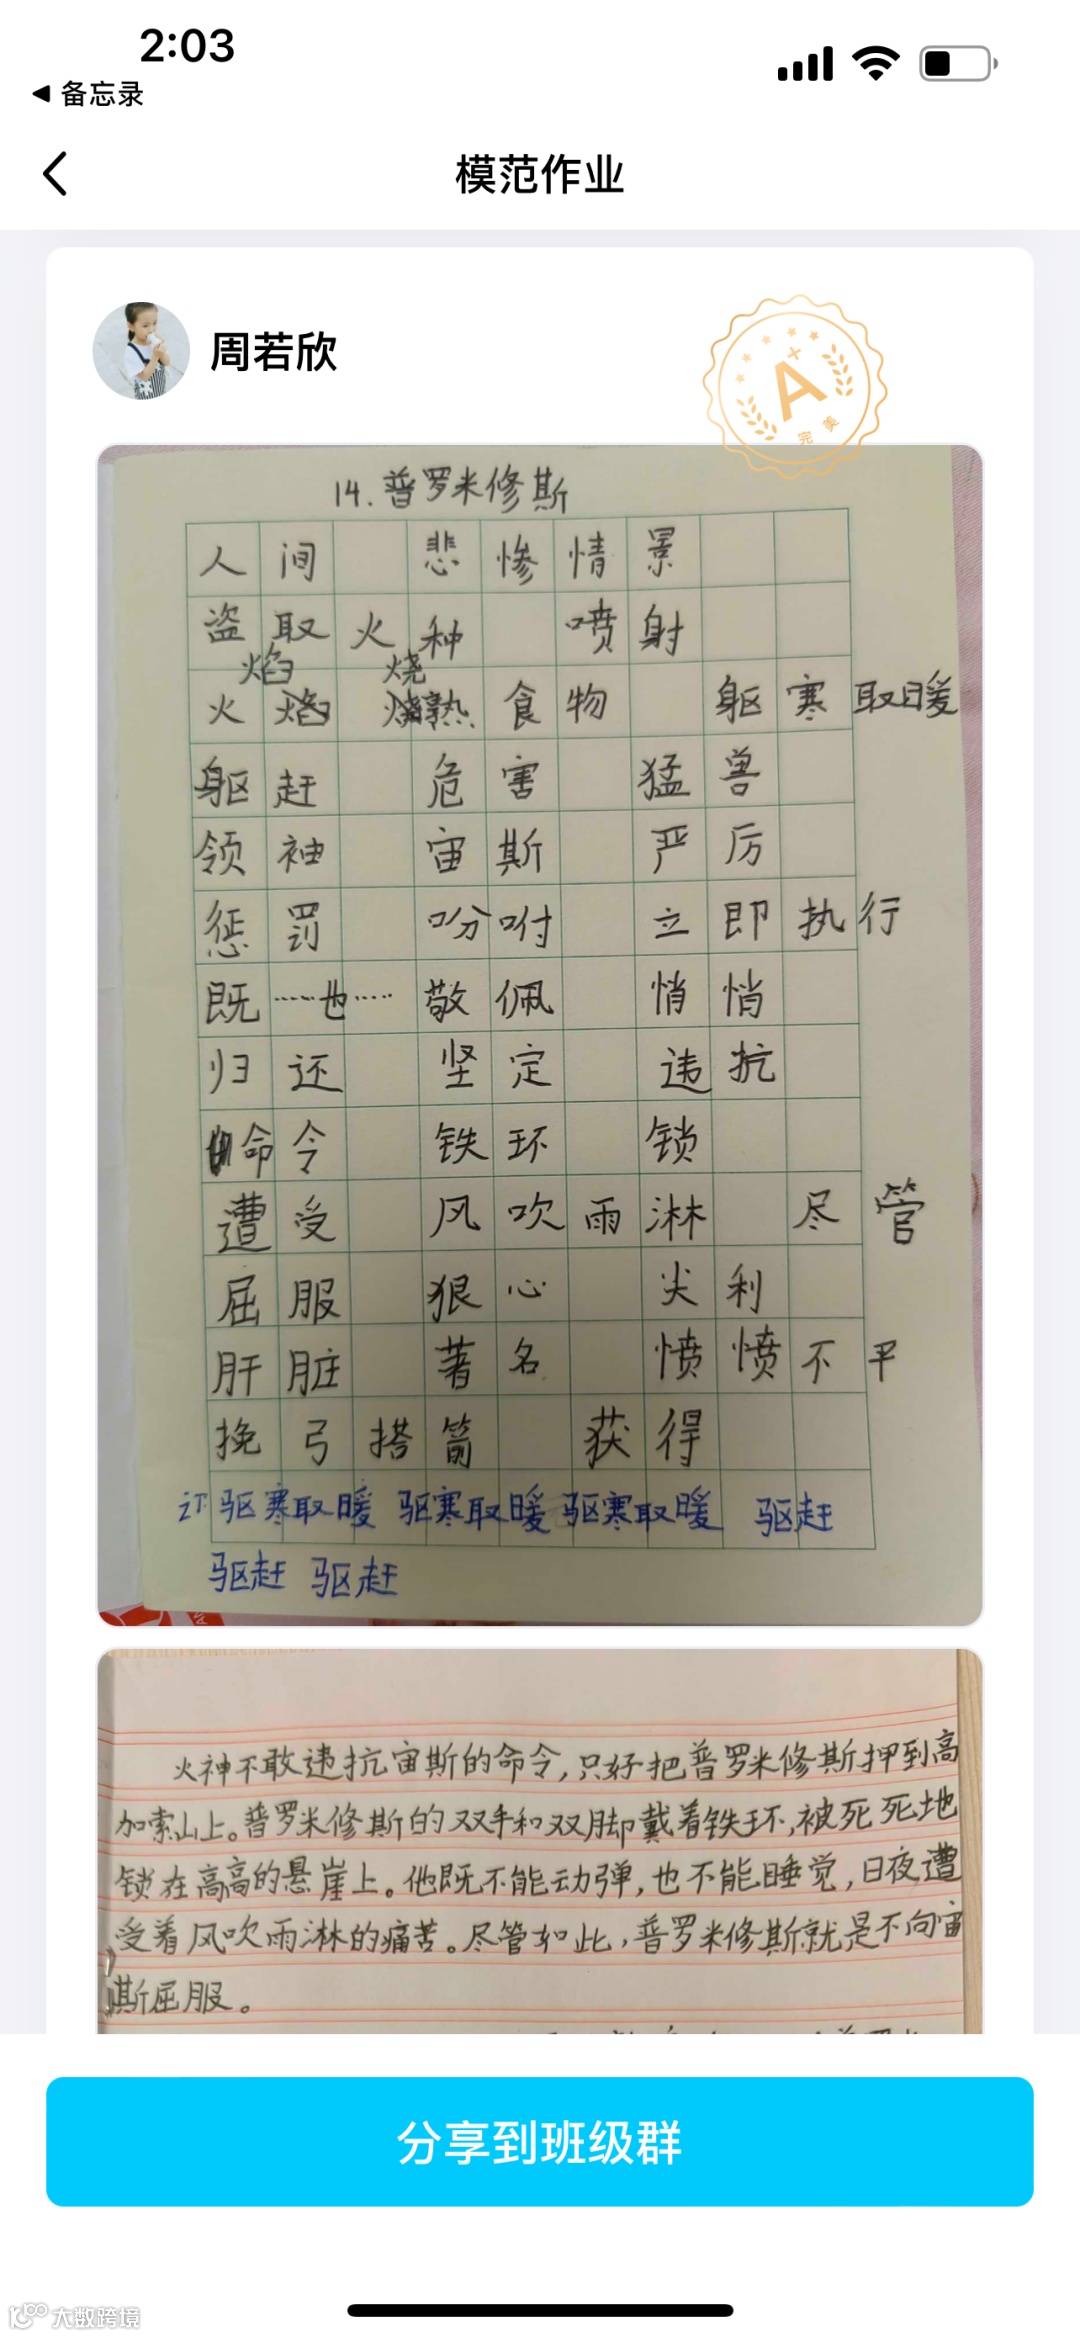 2:03
备忘录
模范作业
周若欣
A+
完美
14.普罗米修斯
人间 悲惨情景
盗取火种 喷射
焰 烧
火焰 烧熟食物 躯寒取暖
躯赶 危害 猛兽
领袖 宙斯 严厉
惩罚 吩咐 立即执行
既……也…… 敬佩 悄悄
归还 坚定 违抗
命令 铁环 锁
遭受 风吹雨淋 尽管
屈服 狠心 尖利
肝脏 著名 愤愤不平
挽弓搭箭 获得
订:驱寒取暖 驱寒取暖 驱寒取暖 驱赶
驱赶 驱赶
火神不敢违抗宙斯的命令,只好把普罗米修斯押到高
加索山上。普罗米修斯的双手和双脚戴着铁环,被死死地
锁在高高的悬崖上。他既不能动弹,也不能睡觉,日夜遭
受着风吹雨淋的痛苦。尽管如此,普罗米修斯就是不向宙
斯屈服。
分享到班级群
大数跨境